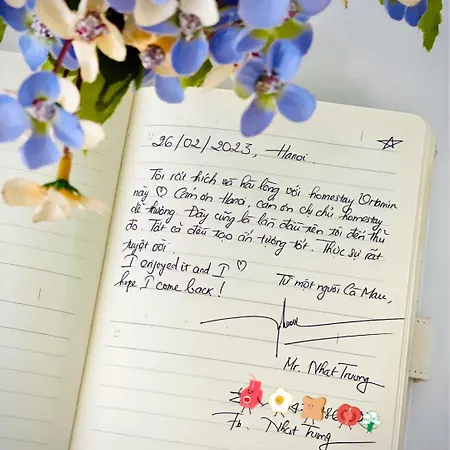 26/02/2023, Hanoi.
Tôi rất thích và hài lòng với homestay Urbmin
này ♡ Cám ơn Hanoi, cám ơn chị chủ homestay
dễ thương. Đây cũng là lần đầu tiên tôi đến thủ
đô. Tất cả đều tạo ấn tượng tốt. Thực sự rất
tuyệt vời.
I enjoyed it and I ♡
hope I come back!
Từ một người Cà Mau,
Mr. Nhat Truong
Fb. Nhat Truong